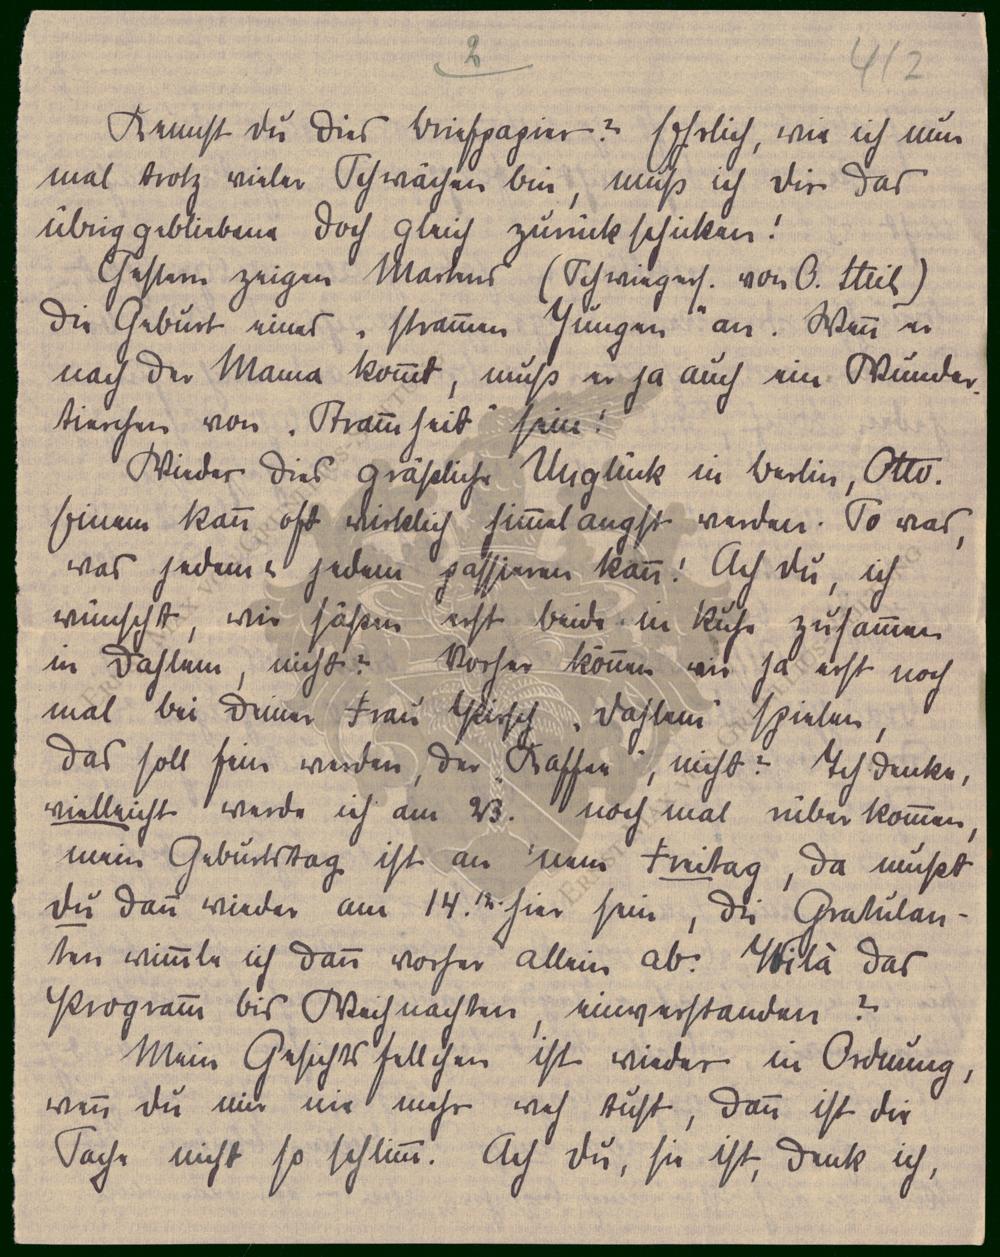 2
412
Kennst du dies Briefpapier? Ehrlich, wie ich nun
mal trotz vieler Schwächen bin, muß ich dir das
übriggebliebene doch gleich zurückschicken!
Gestern zeigen Martens (Schwiegers. von O. Heil)
die Geburt eines „stram̅en Jungen" an. Wen̅ er
nach der Mama kom̅t, muß er ja auch ein Wunder-
tierchen von „Stram̅heit" sein!
Wieder dies gräßliche Unglück in Berlin, Otto.
Einem kan̅ oft wirklich him̅elangst werden. So was,
was jedem u. jedem passieren kan̅! Ach du, ich
wünscht, wir säßen erst beide in Ruhe zusam̅en
in Dahlem, nicht? Vorher kön̅en wir ja erst noch
mal bei deiner Frau Hirsch „Dahlem" spielen,
das soll fein werden, der „Kaffee", nicht? Ich denke,
vielleicht werde ich am 23. noch mal rüber kom̅en,
mein Geburtstag ist an 'nem Freitag, da mußt
du dan̅ wieder am 14.12. hier sein, die Gratulan-
ten wim̅le ich dan̅ vorher allein ab. Voilà das
Program̅ bis Weihnachten, einverstanden?
Mein Gesichtsfellchen ist wieder in Ordnung,
wen̅ du mir nie mehr weh tust, dan̅ ist die
Sache nicht so schlim̅. Ach du, sie ist, denk ich,